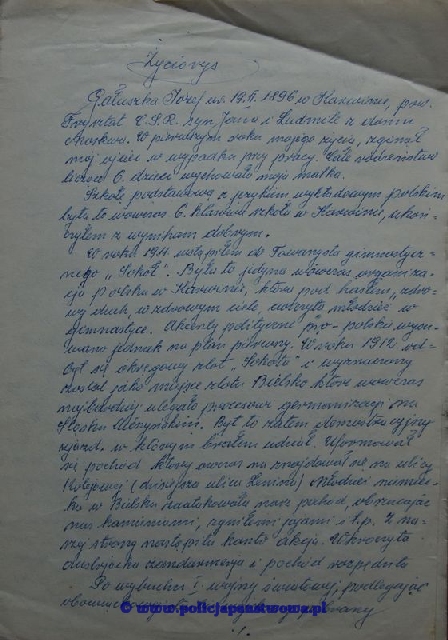 Życiorys
Gałuszka Józef ur. 19.I. 1896 w Karwinie, pow.
Frysztat Č.S.R. syn Jana i Ludmiły z domu
W pierwszym roku mojego życia, zginął
mój ojciec w wypadku przy pracy. Całe rodzeństwo
6. dzieci wychowała moja matka.
Szkołę podstawową z językiem wykładowym polskim
była to wówczas 6. klasowa szkoła w Karwinie, ukoń-
czyłem z wynikiem dobrym.
W roku 1911 wstąpiłem do Towarzystwa gimnastycz-
nego „Sokół". Była to jedyna wówczas organiza-
cja polska w Karwinie, która pod hasłem „zdro-
wy duch w zdrowym ciele, ćwiczyła młodzież w
gimnastyce. Akcenty polityczne pro-polskie wysu-
wano jednak na plan pierwszy. W roku 1912 od-
był się okręgowy zlot „Sokoła" i wyznaczony
został jako miejsce zlotu Bielsko które wówczas
najbardziej ulegało procesowi germanizacji na
Śląsku Cieszyńskim. Był to zatem demonstracyjny
zjazd w którym brałem udział. Uformował
się pochód który wówczas znajdował się na ulicy
Kolejowej (dzisiejsza ulica Lenina) młodzież niemiec-
ka w Bielsku zaatakowała nasz pochód, obrzucając
nas kamieniami, zgniłymi jajami i t.p. Z na-
szej strony nastąpiła kontr akcja. Wkroczyła
żandarmeria i pochód rozpędziła
Po wybuchu I wojny światowej, podlegając
© www.policjapanstwowa.pl